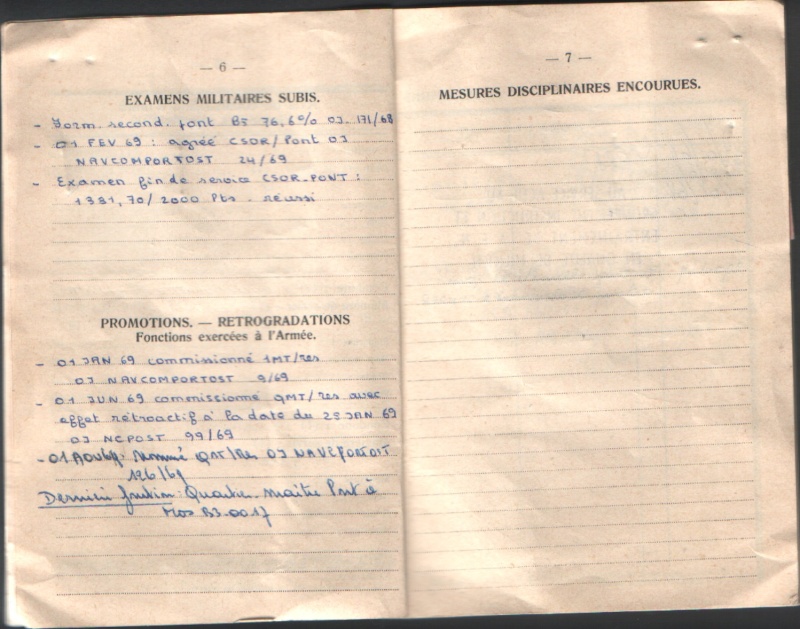 — 6 —
EXAMENS MILITAIRES SUBIS.
- Form. second. pont B5 76,6% OJ. 171/68
- 01 FEV 69 : agréé CSOR/Pont OJ
NAVCOMPORTOST 24/69
- Examen fin de service CSOR-PONT :
1331,70/2000 Pts. réussi
PROMOTIONS. — RETROGRADATIONS
Fonctions exercées à l'Armée.
- 01 JAN 69 commissionné 1MT/res
OJ NAVCOMPORTOST 9/69
- 01 JUN 69 commissionné QMT/res avec
effet rétroactif à la date du 25 JAN 69
OJ NCPOST 99/69
- 01 AOU 69 : Nommé QMT/Res OJ
126/69
Dernière fonction : Quartier-maître Pont à
Mos B3.0017
— 7 —
MESURES DISCIPLINAIRES ENCOURUES.